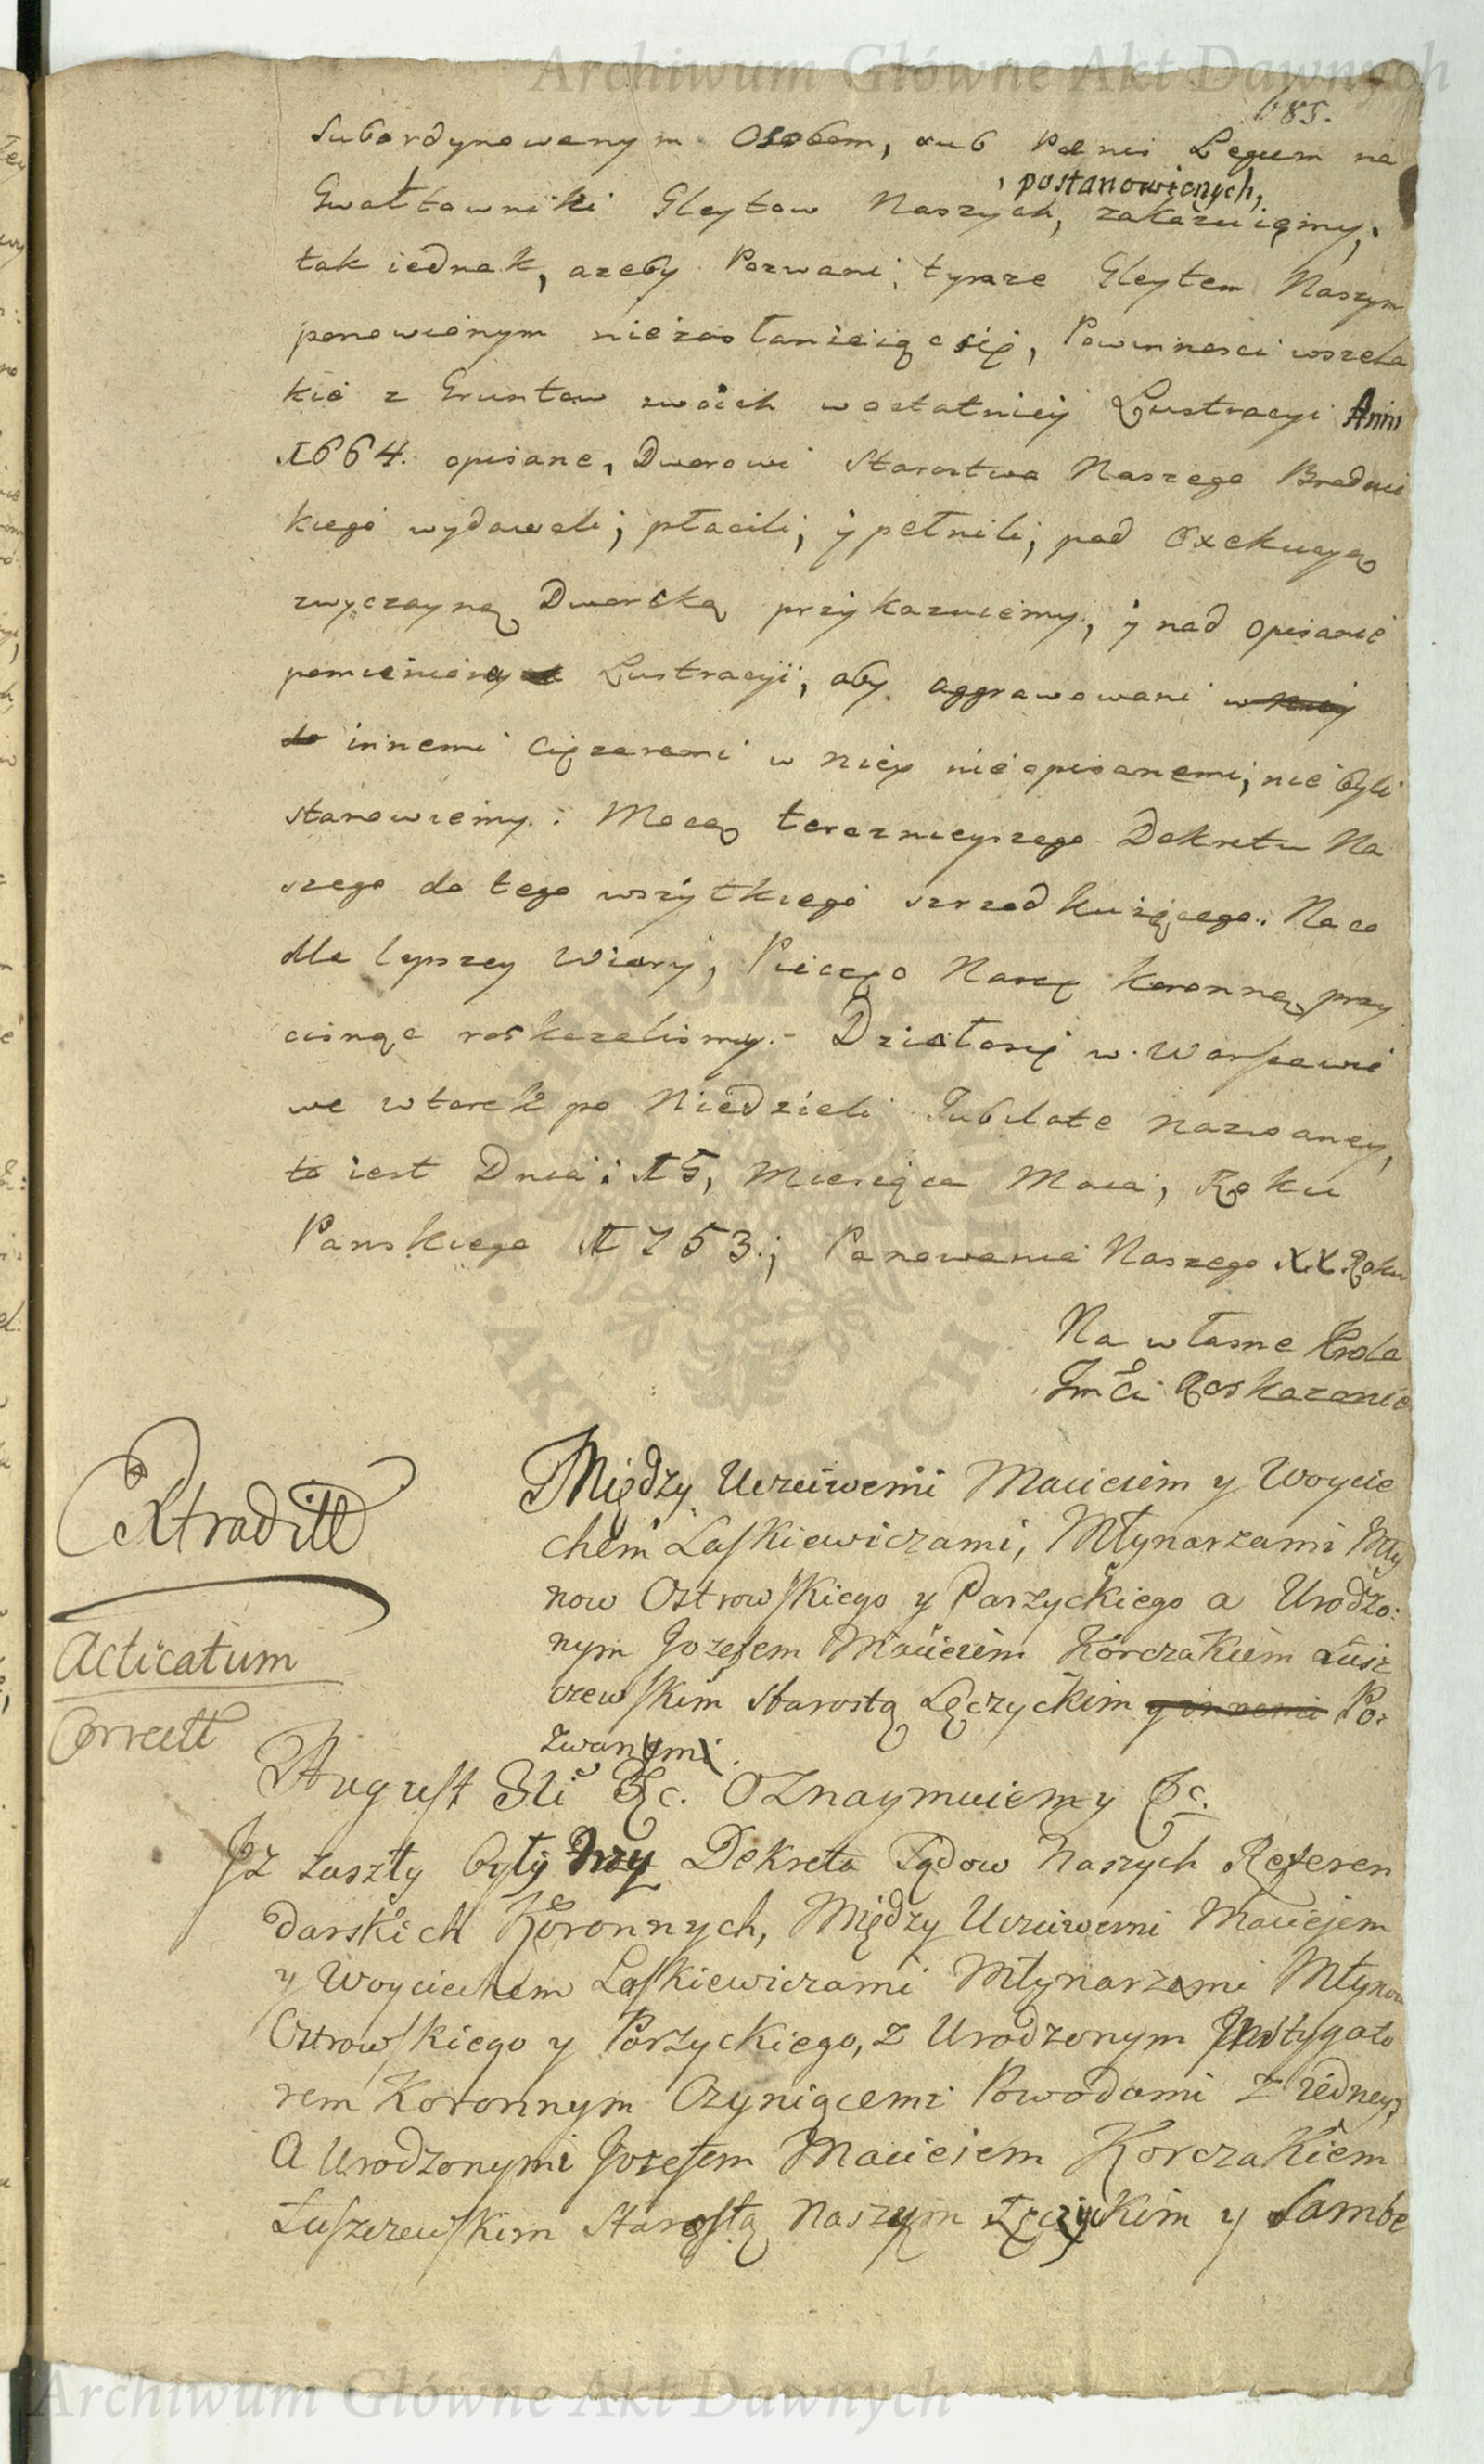 Archiwum Główne Akt Dawnych
685.
Subordynowanym Osobom, sub Pœnis Legum na
, postanowionych,
Gwałtowniki Gleytow Naszych, zakazuięmy,
tak iednak, azeby Pozwani, tymze Gleytem Naszym
ponowionym niezasłaniaiąc się, Powinnosci wszela
kie z Gruntow swoich w ostatniey Lustracyi Anni
1664. opisane, Dworowi Starostwa Naszego Brodnic
kiego wydawali, płacili, y pełnili, pod Exekucyą
zwyczayną Dworską przykazuiemy, y nad opisanie
pomienioney Lustracyi, aby aggrawowani w
innemi Cięzarami w niey nieopisanemi, nie byli
stanowiemy: Mocą teraznieyszego Dekretu Na
szego do tego wszytkiego szrzodkuiącego. Na co
dla lepszey Wiary, Pieczęc Naszę Koronną przy
cisnąc roskazalismy. Działosię w Warszawie
we wtorek po Niedzieli Jubilate nazwaney,
to iest Dnia: 15, Miesiąca Maia, Roku
Panskiego 1753.; Panowania Naszego XX. Roku
Na własne Krola
Jmći Roskazanie
Extraditt
Między Uczciwemi Maciciem y Woycie
chem Laskiewiczami, Młynarzami Mły
now Ostrowskiego y Parzyckiego a Urodzo:
nym Jozefem Macieiem Korczakiem Łusz
czewskim Starostą Łęczyckim y innemi Po:
zwanymi.
Acticatum
Correctt
August 3ci &c. Oznaymuiemy &c.
Jz zaszły były trzy Dekreta Sądow Naszych Referen
darskich Koronnych, Między Uczciwemi Maciejem
y Woyciechem Laskiewiczami Młynarzami Młynow
Ostrowskiego y Porzyckiego, z Urodzonym Jnstygato
rem Koronnym Czyniącemi Powodami z iedney,
A Urodzonymi Jozefem Macieiem Korczakiem
Łuszczewskim Starostą Naszym Łęczyckim y Sambo
Archiwum Główne Akt Dawnych